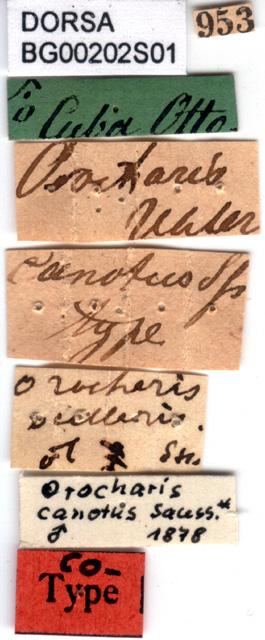 DORSA
BG00202S01
953
Cuba Otto.
Orocharis
Uhler
canotus Sss
type
orocharis
♂ Sss
Orocharis
canotus Sauss.*
♂ 1878
CO-
Type